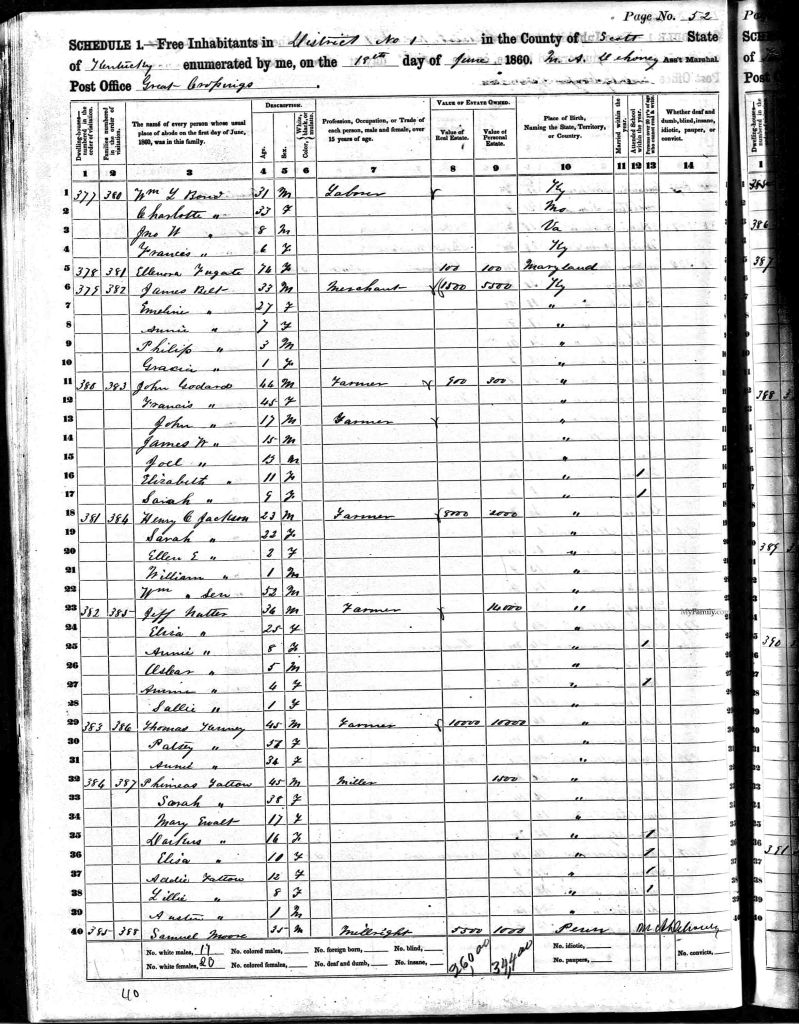 Page No. 52
SCHEDULE 1.—Free Inhabitants in District No 1 in the County of Scott State
of Kentucky enumerated by me, on the 18th day of June 1860. Ass't Marshal
Post Office Great Crossings
DESCRIPTION. VALUE OF ESTATE OWNED.
Dwelling-houses—numbered in the order of visitation. Families numbered in the order of visitation. The name of every person whose usual place of abode on the first day of June, 1860, was in this family. Age. Sex. Color, White, black, or mulatto. Profession, Occupation, or Trade of each person, male and female, over 15 years of age. Value of Real Estate. Value of Personal Estate. Place of Birth, Naming the State, Territory, or Country. Married within the year. Attended School within the year. Persons over 20 y'rs of age who cannot read & write. Whether deaf and dumb, blind, insane, idiotic, pauper, or convict.
1 2 3 4 5 6 7 8 9 10 11 12 13 14
1 377 380 Wm L Bond 31 M Laborer Ky
2 Charlotte " 33 F Mo
3 Jno W " 8 M Va
4 Francis " 6 F Ky
5 378 381 Ellenora Fugate 76 F 100 100 Maryland
6 379 382 James Belt 33 M Merchant 1500 5500 Ky
7 Emeline " 27 F "
8 Annie " 7 F "
9 Philip " 3 M "
10 Gracie " 1 F "
11 380 383 John Godard 44 M Farmer 900 300 "
12 Francis " 45 F "
13 John " 17 M Farmer "
14 James W " 15 M "
15 Joel " 13 M "
16 Elizabeth " 11 F " 1
17 Sarah " 9 F " 1
18 381 384 Henry C Jackson 23 M Farmer 8000 2000 "
19 Sarah " 22 F "
20 Ellen E " 2 F "
21 William " 1 M "
22 Wm " Sen 52 M "
23 382 385 Jeff Nutter 36 M Farmer 14000 "
24 Eliza " 25 F "
25 Annie " 8 F " 1
26 Oskar " 5 M "
27 " 4 F " 1
28 Sallie " 1 F "
29 383 386 Thomas 45 M Farmer 10000 10000 "
30 Patsey " F "
31 " 34 F "
32 384 387 Phineas Tatton 45 M Miller 1500 "
33 Sarah " 38 F "
34 Mary Ewalt 17 F "
35 Darkus " 16 F " 1
36 Eliza " 10 F " 1
37 Addie Tatton 12 F " 1
38 Lillie " 8 F " 1
39 Austin " 1 M "
40 385 388 Samuel Moore 35 M Millright 5500 1000 Penn
No. white males, 17 No. colored males, No. foreign born, No. blind, No. idiotic,
No. white females, 20 No. colored females, No. deaf and dumb, No. insane, 26000 34400 No. paupers, No. convicts,
40
MyFamily.com